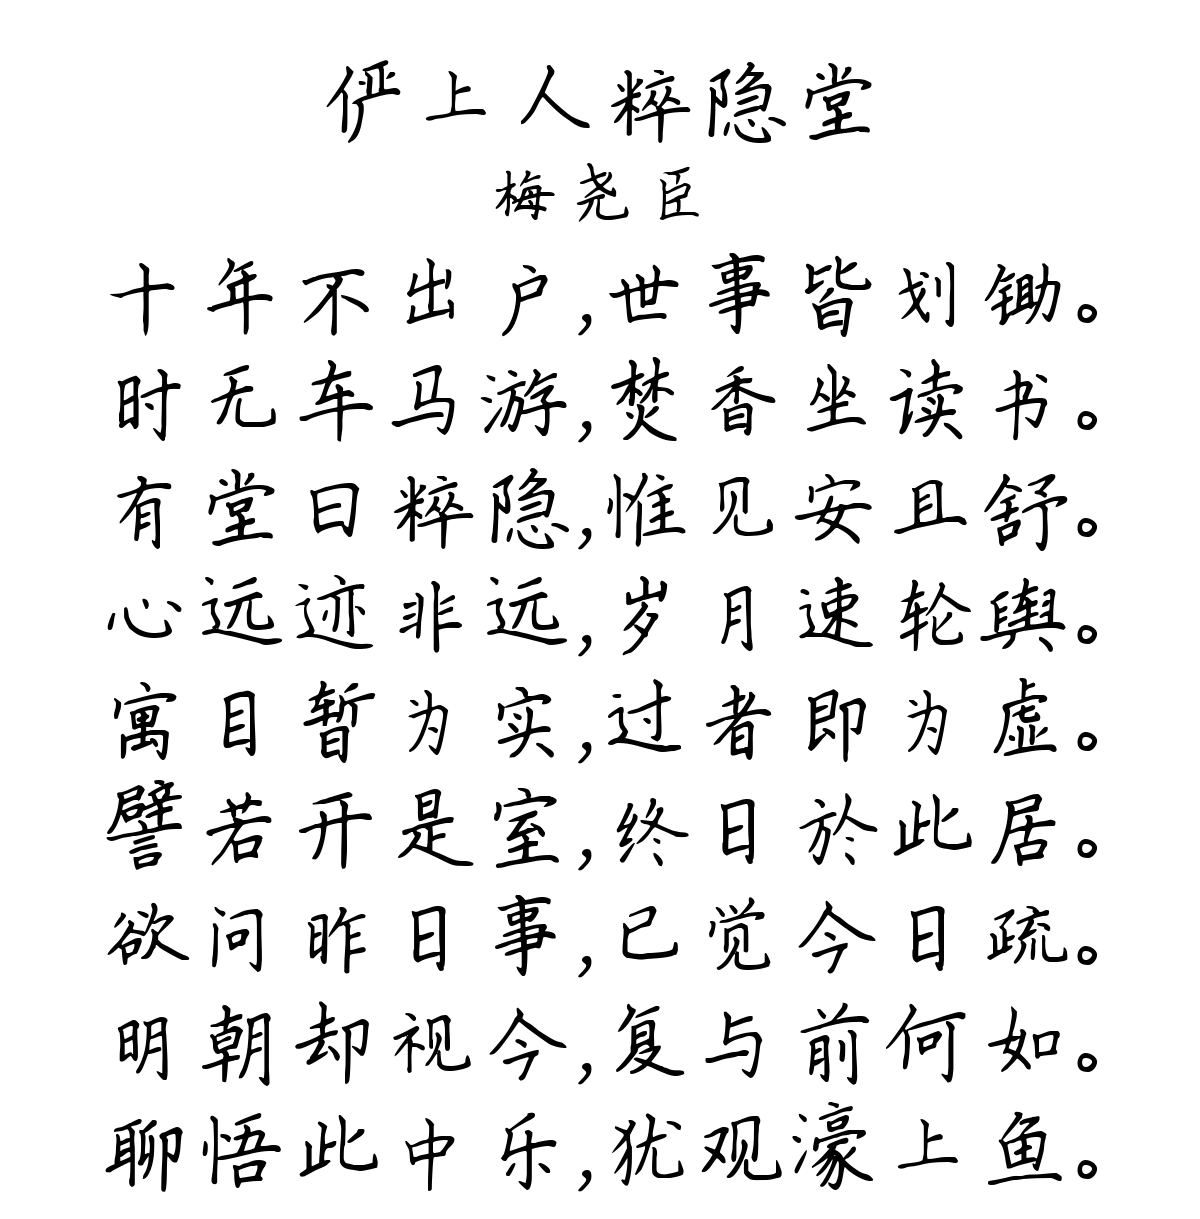 俨上人粹隐堂
梅尧臣
十年不出户,世事皆划锄。
时无车马游,焚香坐读书。
有堂曰粹隐,惟见安且舒。
心远迹非远,岁月速轮舆。
寓目暂为实,过者即为虚。
譬若开是室,终日於此居。
欲问昨日事,已觉今日疏。
明朝却视今,复与前何如。
聊悟此中乐,犹观濠上鱼。